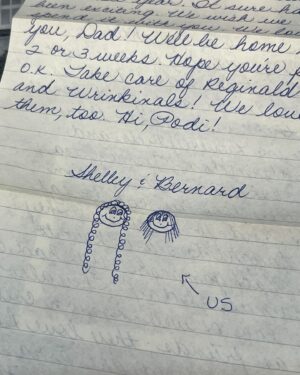 year. It sure h
been exciting. We wish we
you, Dad! We'll be home
2 or 3 weeks. Hope you're
o.k. Take care of Reginald
and Wrinkinals! We lov
them, too. Hi, Podi!
Shelley & Bernard
US